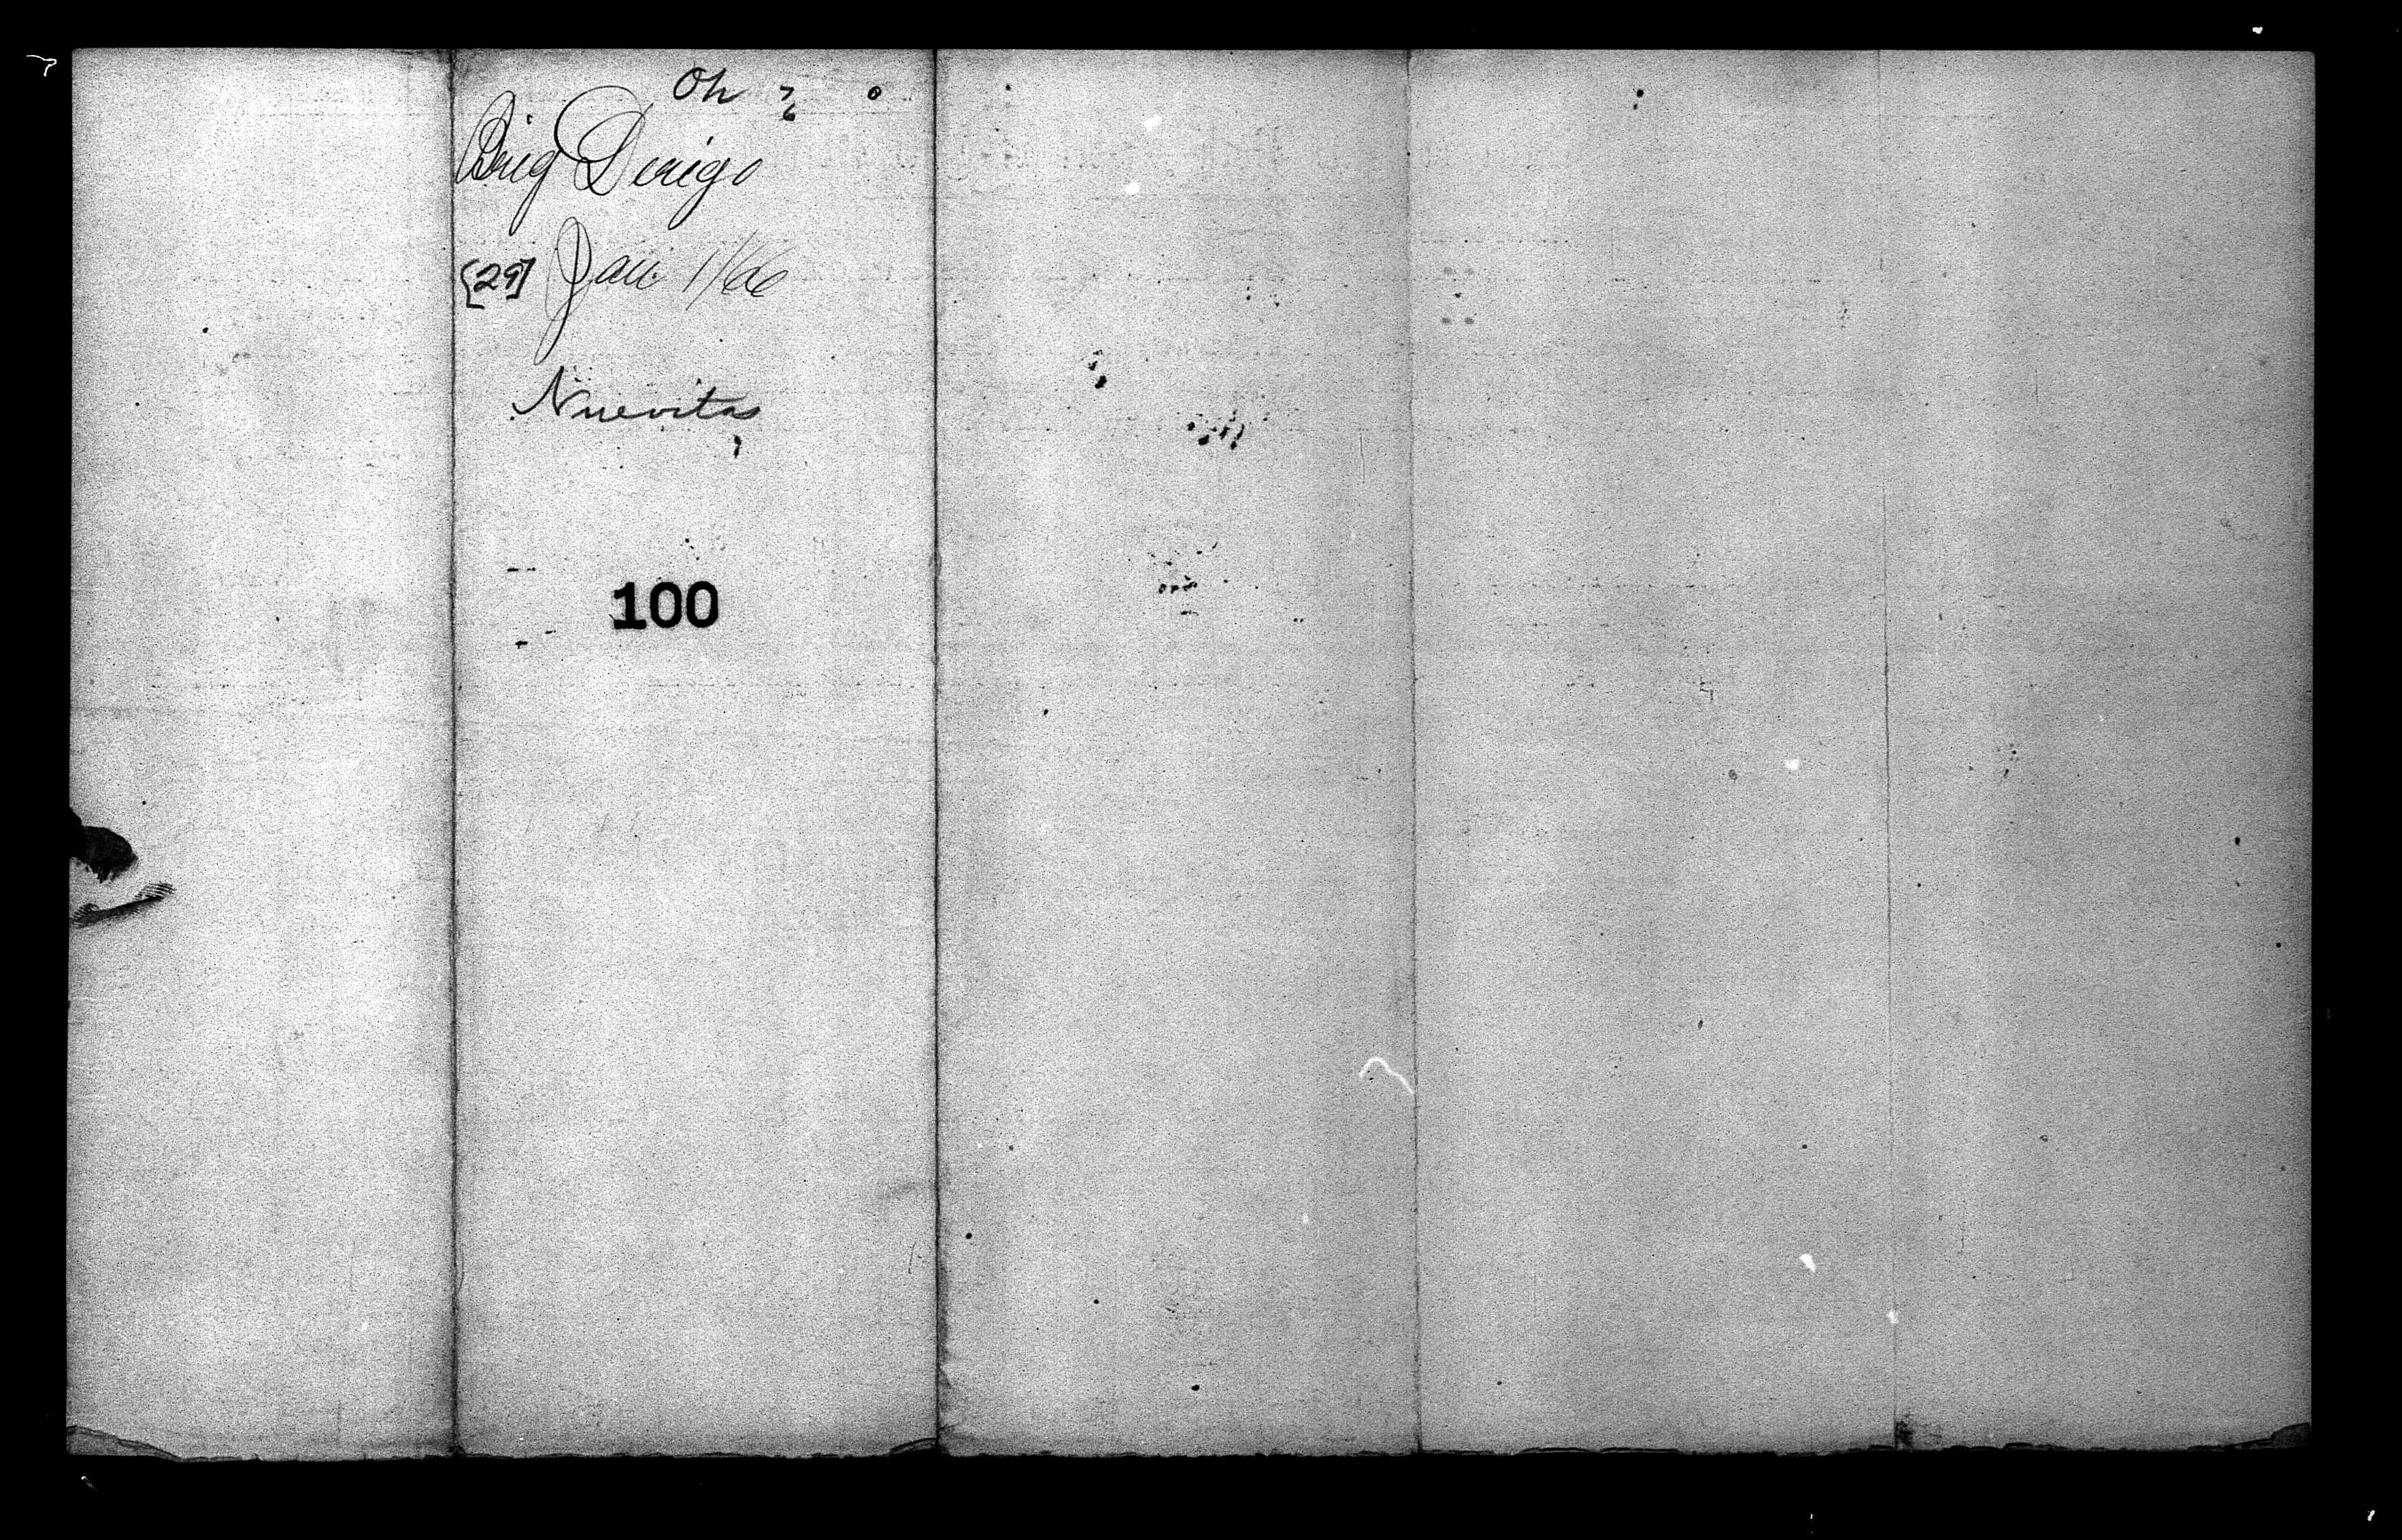 Oh 7/6
Brig Dirigo
[29] Jan. 1/66
Nuevitas
100